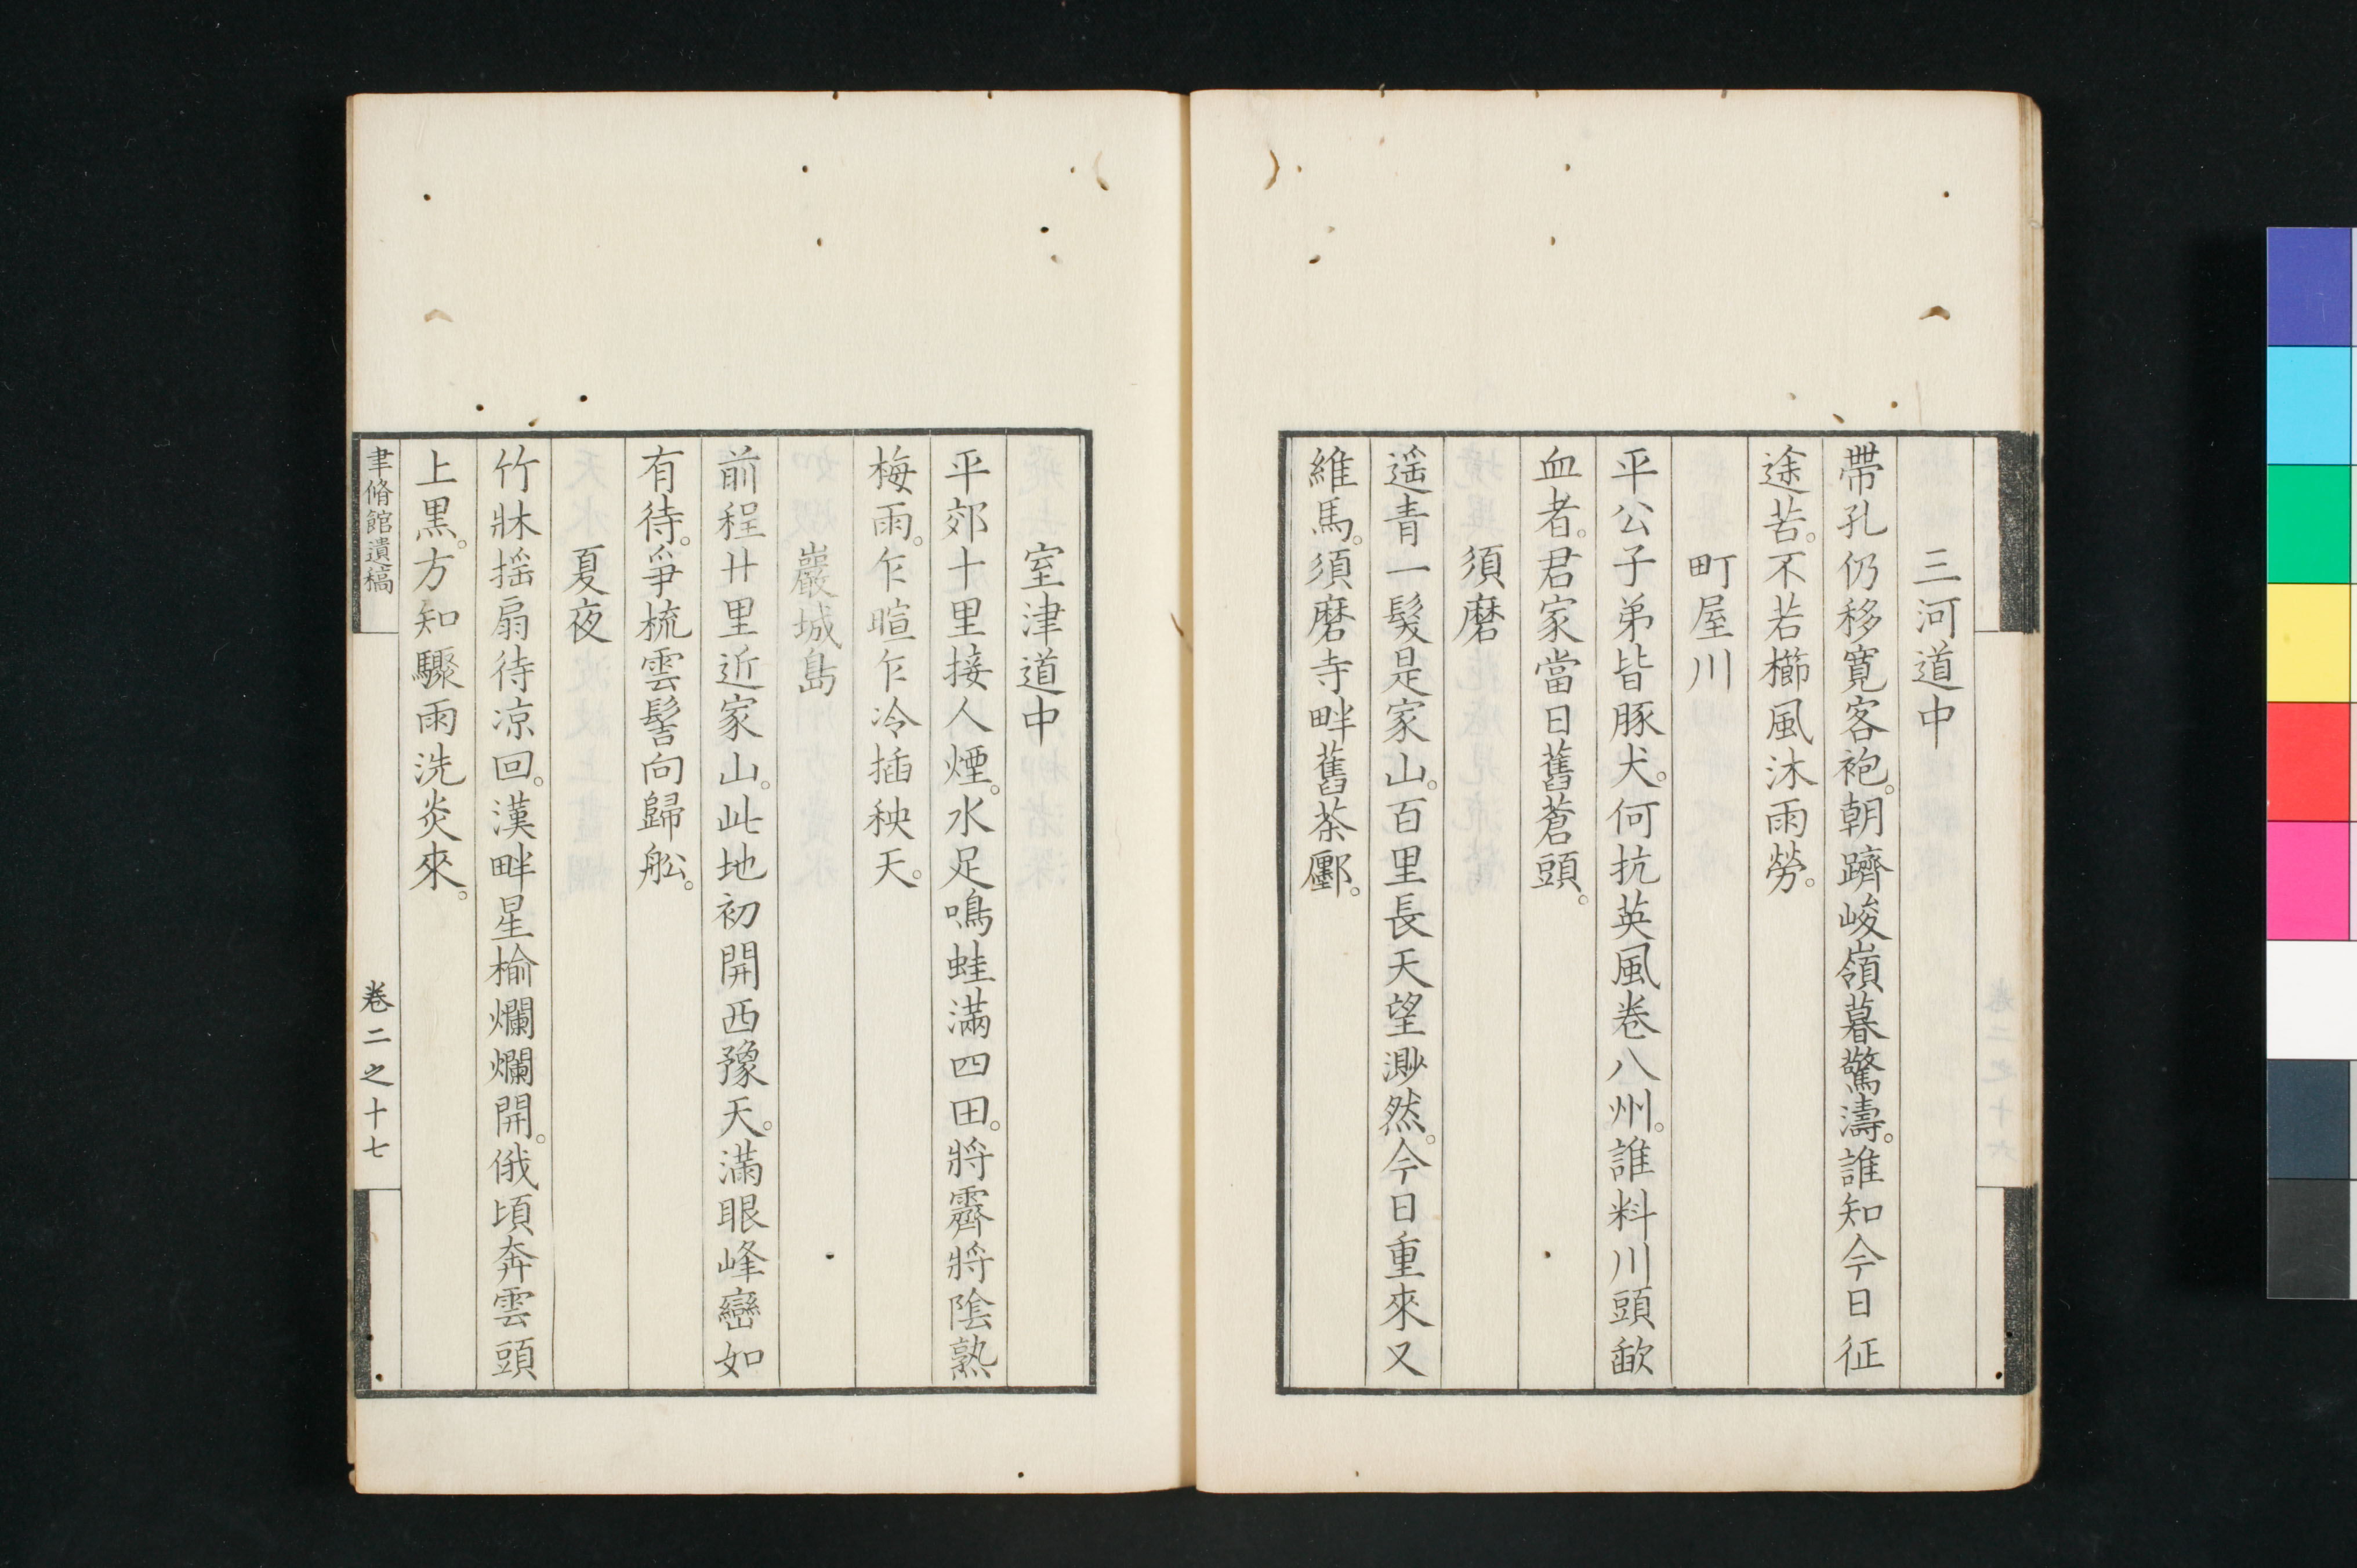 三河道中
帶孔仍移寬客袍。朝躋峻嶺暮驚濤。誰知今日征
途苦。不若櫛風沐雨勞。
町屋川
平公子弟皆豚犬。何抗英風卷八州。誰料川頭歃
血者。君家當日舊蒼頭。
須磨
遥青一髮是家山。百里長天望渺然。今日重來又
維馬。須磨寺畔舊茶廛。
室津道中
平郊十里接人煙。水足鳴蛙滿四田。將霽將陰熟
梅雨。乍暄乍冷插秧天。
巖城島
前程廿里近家山。此地初開西豫天。滿眼峰巒如
有待。爭梳雲髻向歸舩。
夏夜
竹牀揺扇待凉回。漢畔星榆爛爛開。俄頃奔雲頭
上黒。方知驟雨洗炎來。
聿脩館遺稿
卷二之十七